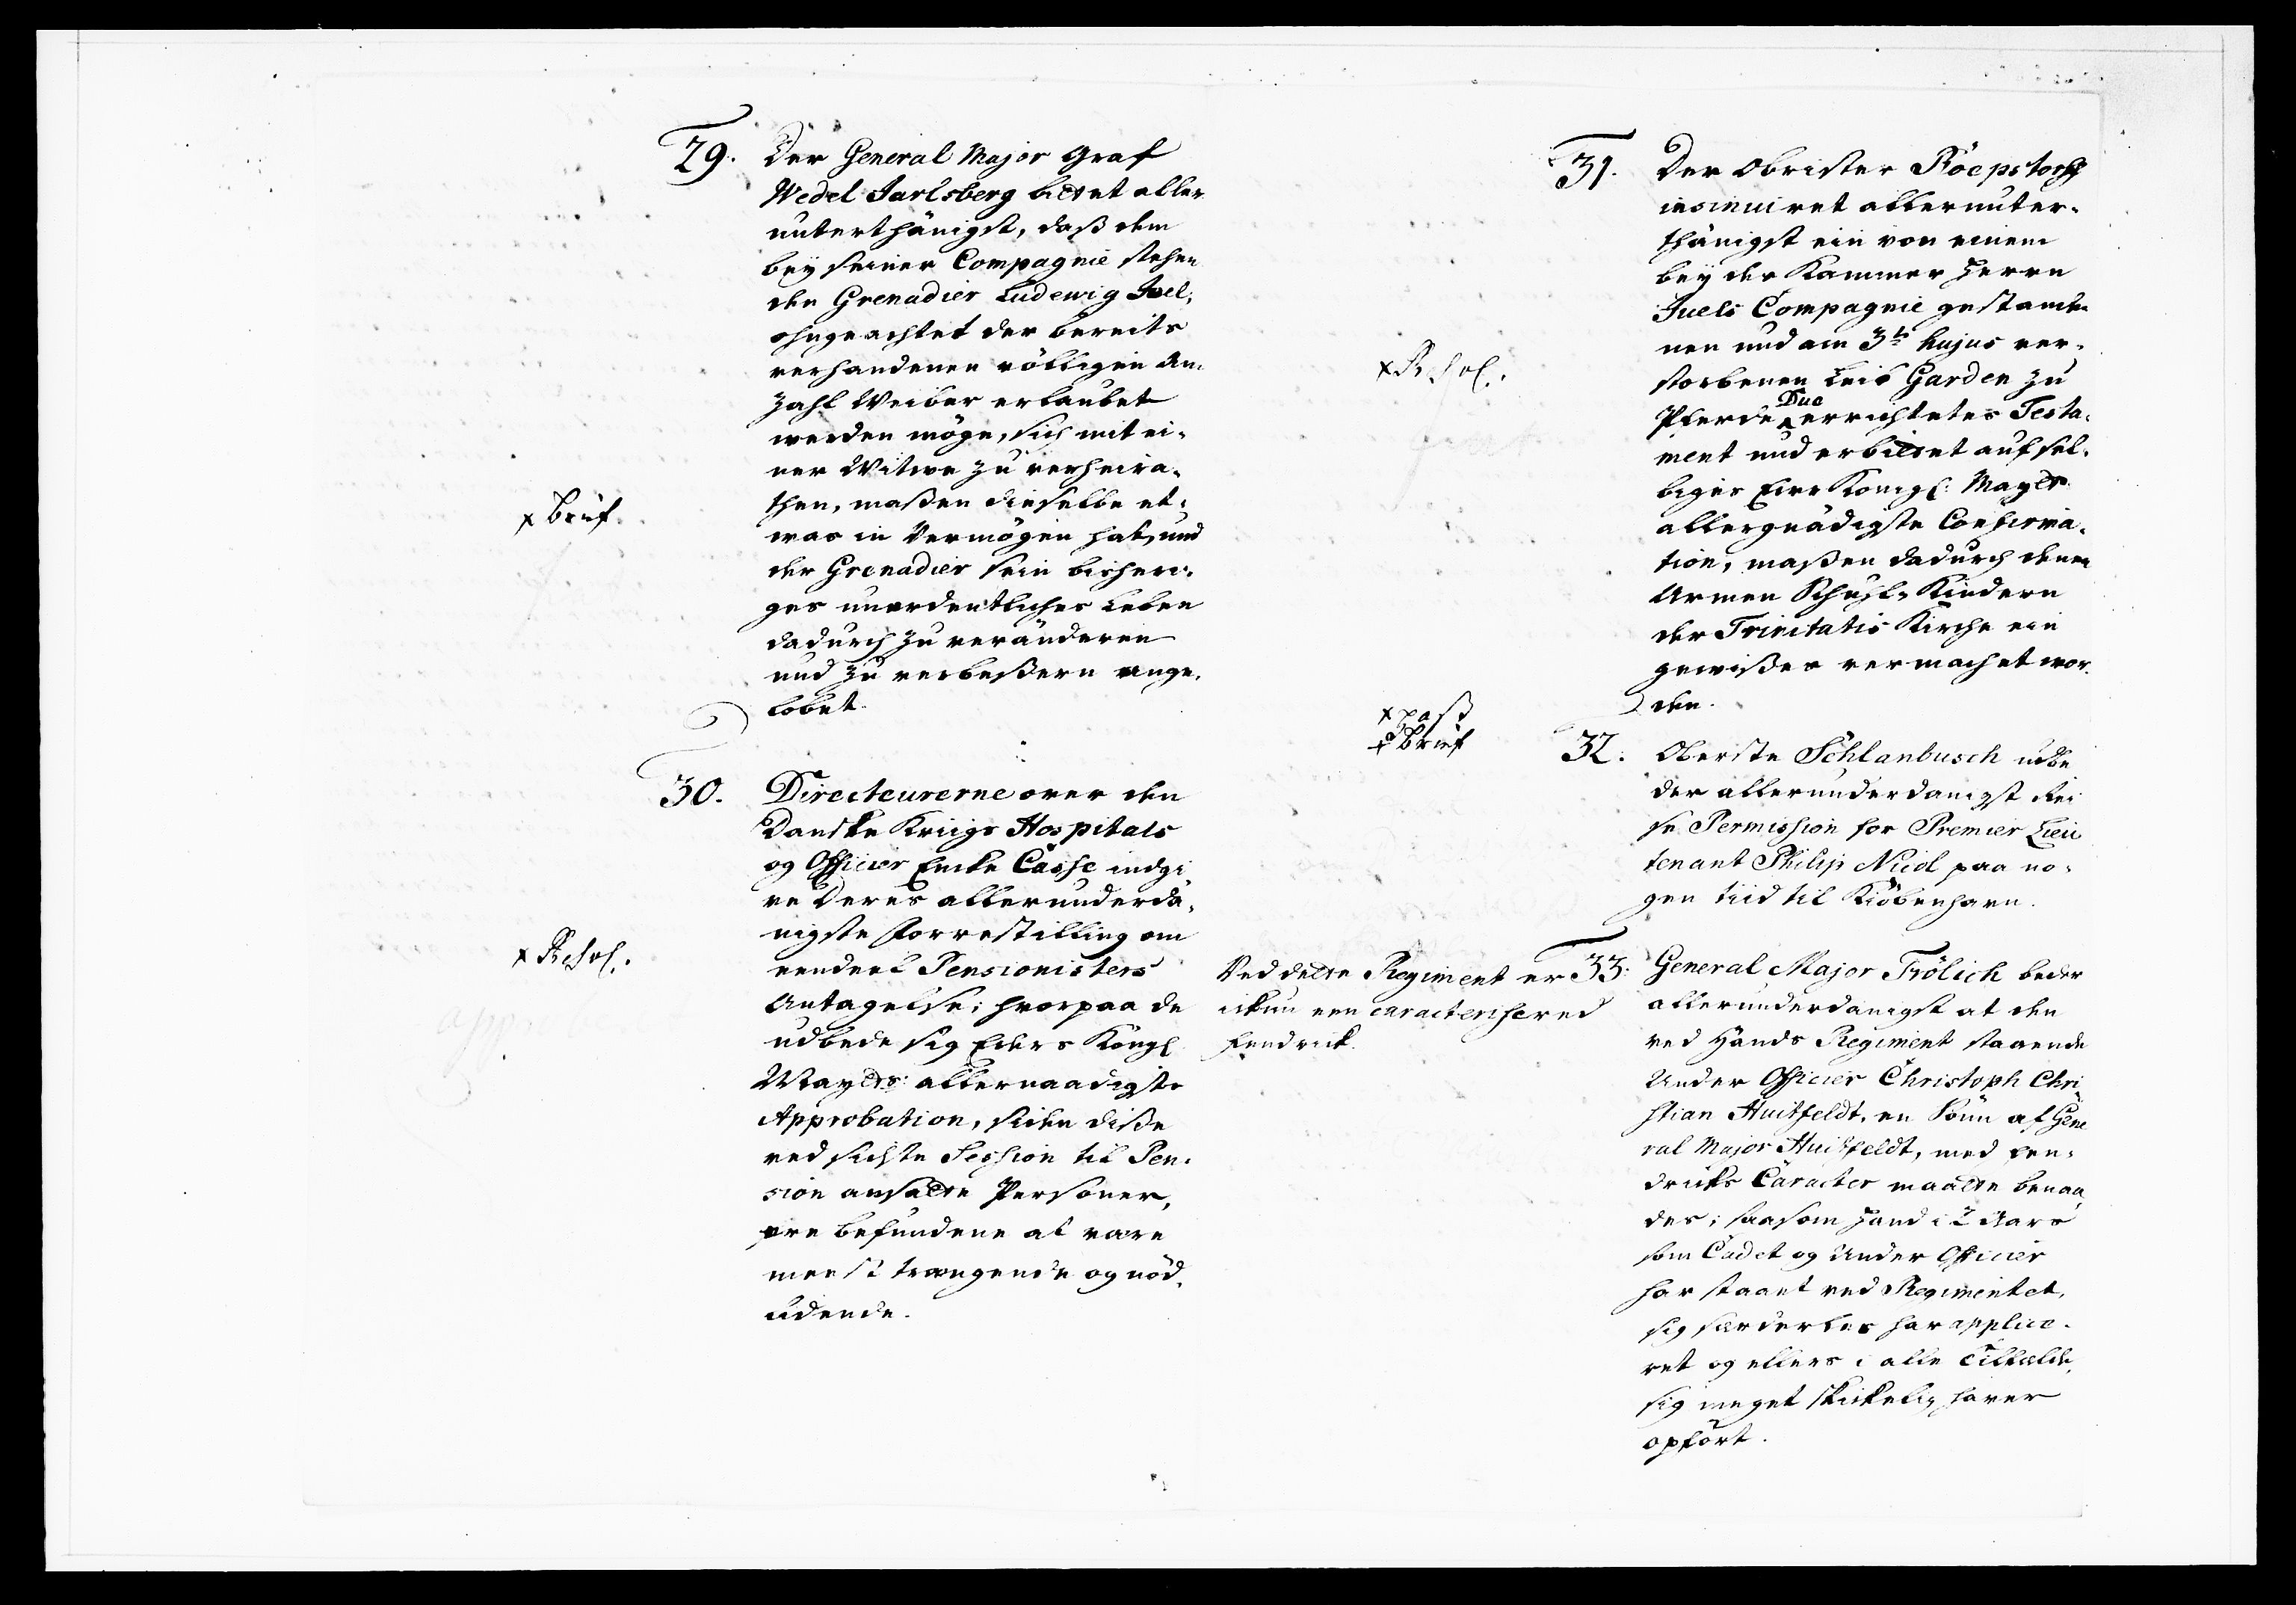 29. Der General Major Graf
Wedel Jarlsberg bittet aller
unterthänigst, daß dem
bey seiner Compagnie stehen
den Grenadier Ludewig Juel,
ohngeachtet der bereits
verhandenen völligen An-
zahl Weiber erlaubet
werden möge, sich mit ei-
ner Witwe zu verheira-
then, maßen dieselbe et-
was in Vermögen hat, und
der Grenadier sein bisheri-
ges unordentliches Leben
dadurch zu veränderen
und zu verbeßern ange-
lobet.
x brief.
30. Directeurerne over den
Danske Kriigs Hospitals
og Officier Encke Casse indgi
ve Deres allerunderdä-
nigste Forrestilling om
eendeel Pensionisters
Antagelse; hvorpaa de
udbede sig Eders Kongl
Mayts: allernaadigste
Approbation, siden diße
ved sidste Session til Pen-
sion ansatte Persohner,
ere befundene at være
meest trængende og nöd-
lidende.
x Resol.
app
31. Der Obrister Röepstorff
insinuiret allerunter-
thänigst ein von einem
bey der Kammer Herrn
Juels Compagnie gestande-
nen und am 3t hujus ver-
storbenen Leib Garden zu
Pferde Due errichtetes Testa-
ment und erbittet auf sel-
biges Eure Königl: Mayts
allergnädigste Confirma-
tion, maßen dadurch denen
Armen Schuhl-Kindern
der Trinitatis Kirche ein
gewißes vermachet wor-
den.
x Resol.
x paß
x brief
32. Oberste Schlanbusch udbe
der allerunderdanigst Rei
se Permission for Premier Lieu
tenant Philip Nicol paa no-
gen tiid til Kiöbenhavn.
33: General Major Frölich beder
allerunderdanigst at den
ved Hands Regiment staaende
Under Officier Christoph Chri-
stian Huitfeldt, en Sönn af Gene
ral Major Huitfeldt, med Fen-
dricks Caracter maatte benaa-
des; saasom Hand i 2 Aar
som Cadet og Under Officier
har staaet ved Regimentet,
sig særdeeles har applice-
ret og ellers i alle Tilfælde
sig meget skikkelig haver
opfört.
Ved dette Regiment er
ickun een caracterisered
Fendrick.